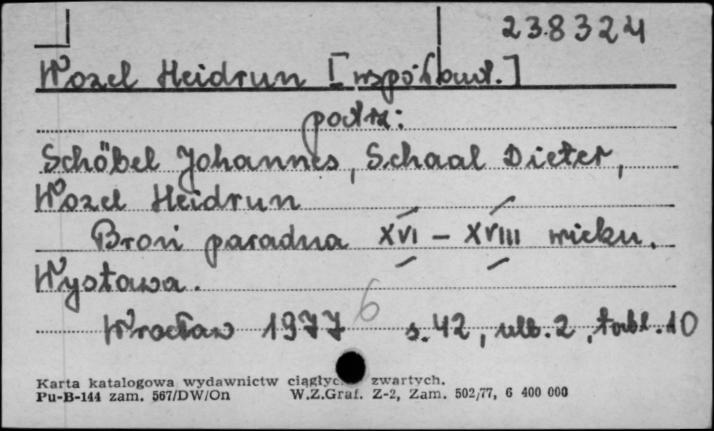 238324
Wozel Heidrun [współaut.]
patrz:
Schöbel Johannes, Schaal Dieter,
Wozel Heidrun
Broń paradna XVI – XVIII wieku.
Wystawa.
Wrocław 1977 6 s. 42, nlb. 2, tabl. 10
Karta katalogowa wydawnictw zwartych.
Pu-B-144 zam. 567/DW/On W.Z.Graf. Z-2, Zam. 502/77, 6 400 000